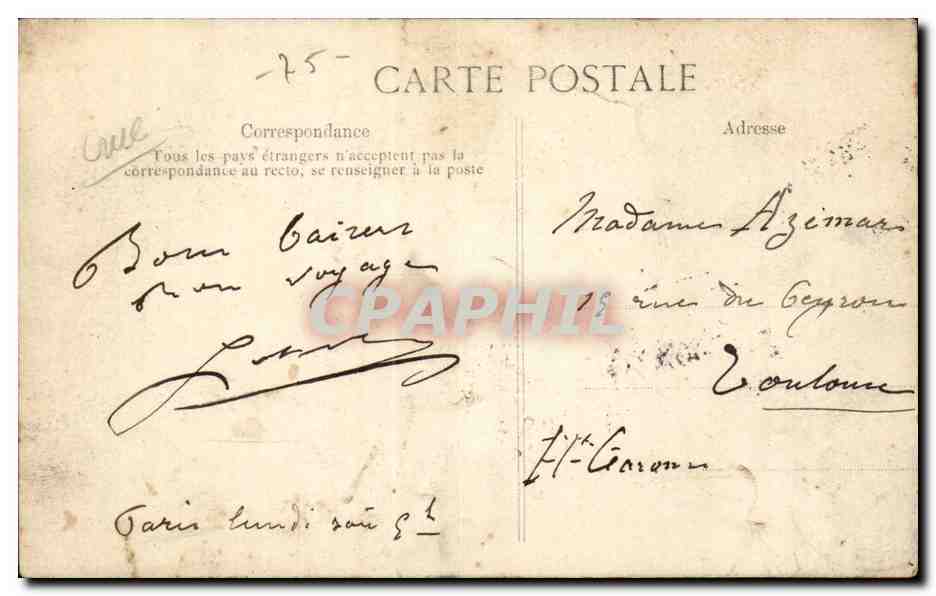 -75-
CARTE POSTALE
crue
Correspondance
Tous les pays étrangers n'acceptent pas la
correspondance au recto, se renseigner à la poste
Bons baisers
Bon voyage
Paris lundi soir 5h
Adresse
Madame Azimar
rue du
Toulouse
Hte Garonne
CPAPHIL